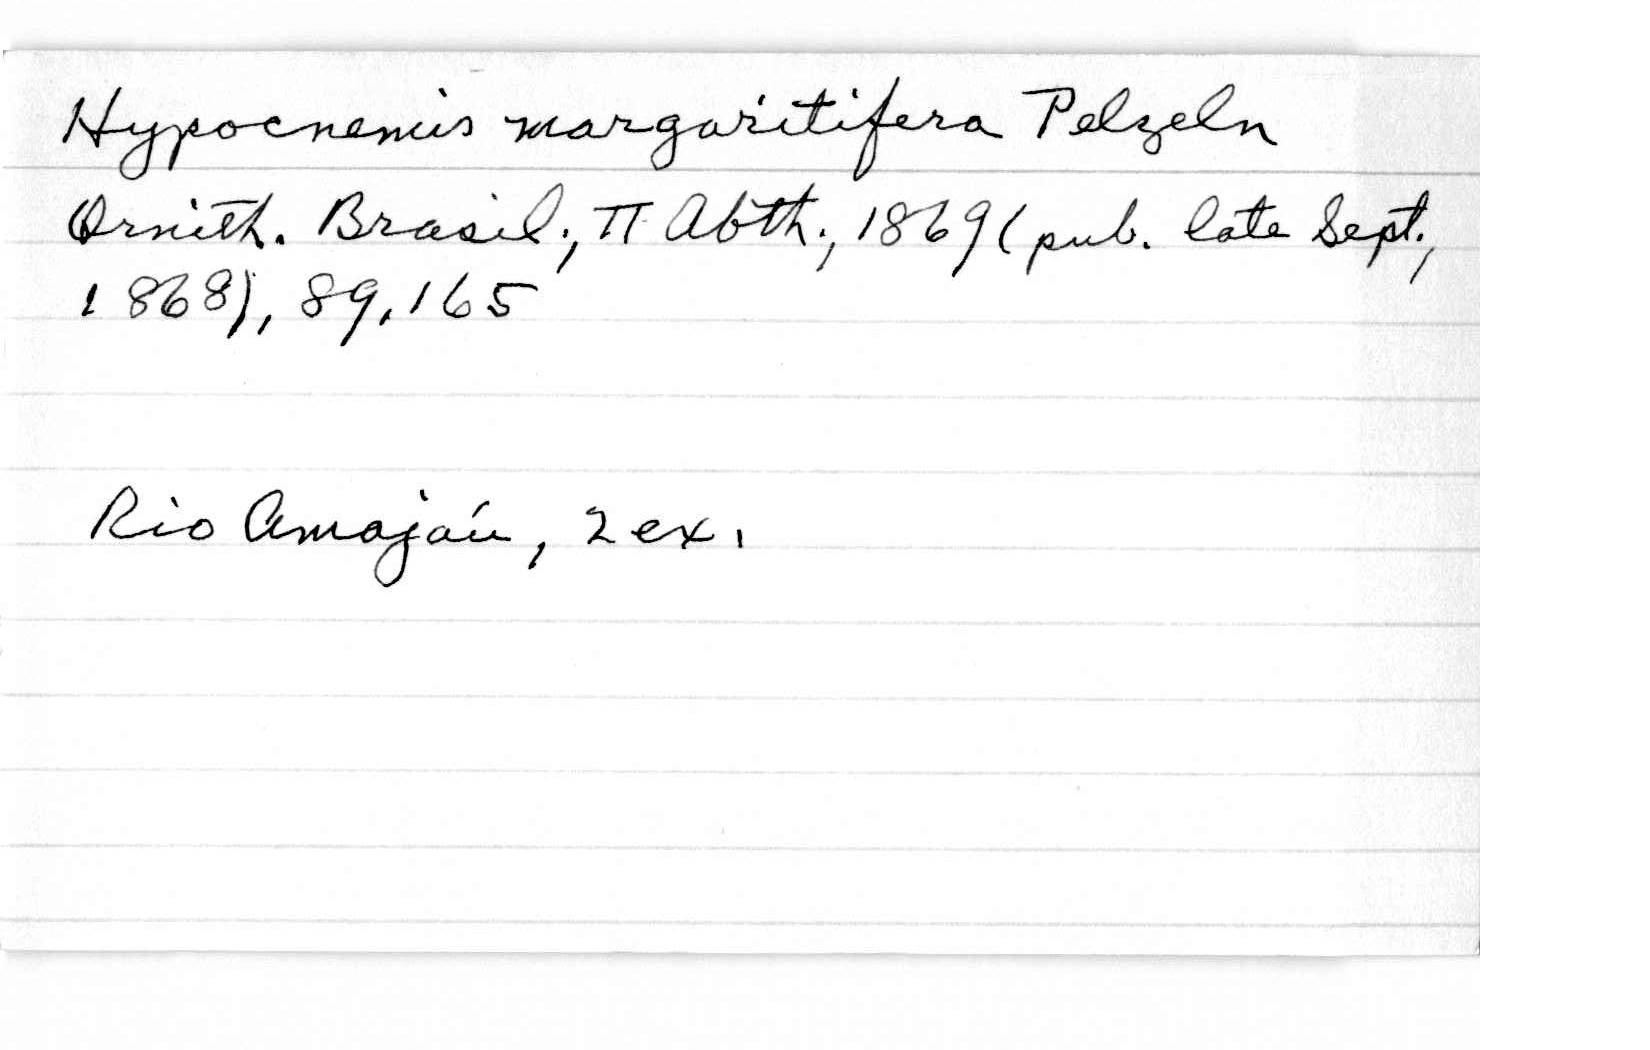 Hypocnemis margaritifera Pelzeln
Ornith. Brasil., II Abth., 1869 (pub. late Sept.,
1868), 89, 165
Rio Amajaú, 2 ex.